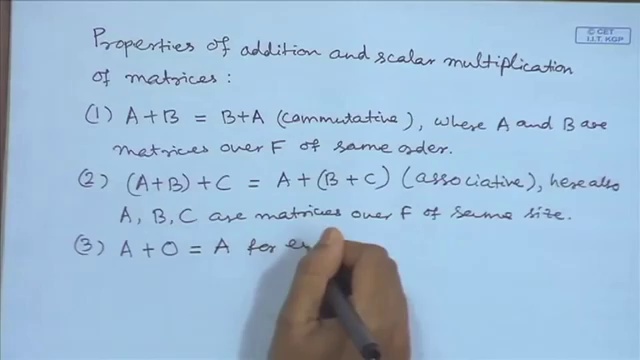 © CET
I.I.T. KGP
Properties of addition and scalar multiplication
of matrices :
(1) A+B = B+A (commutative), where A and B are
matrices over F of same order.
(2) (A+B) + C = A + (B + C) (associative), here also
A, B, C are matrices over F of same size.
(3) A + O = A for